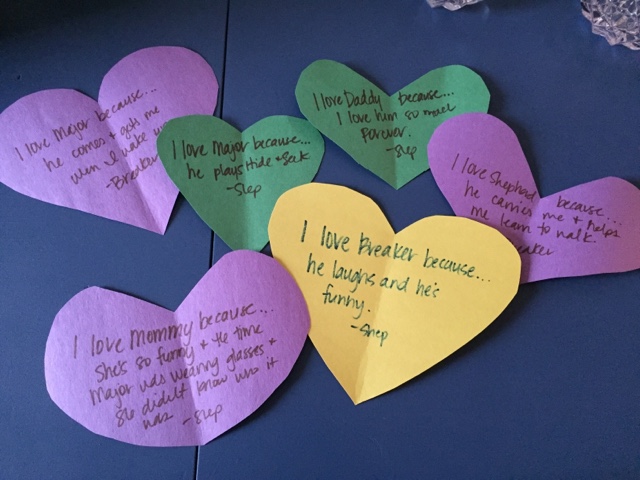 I love Major because...
he comes + gets me
when I wake up
-Breaker
I love Major because...
he plays Hide + Seek
-Shep
I love Daddy because...
I love him so much
forever.
-Shep
I love Shepherd because...
he carries me + helps
me learn to walk.
-Breaker
I love Breaker because...
he laughs and he's
funny.
-Shep
I love Mommy because...
she's so funny + the time
Major was wearing glasses +
she didn't know who it
was -Shep